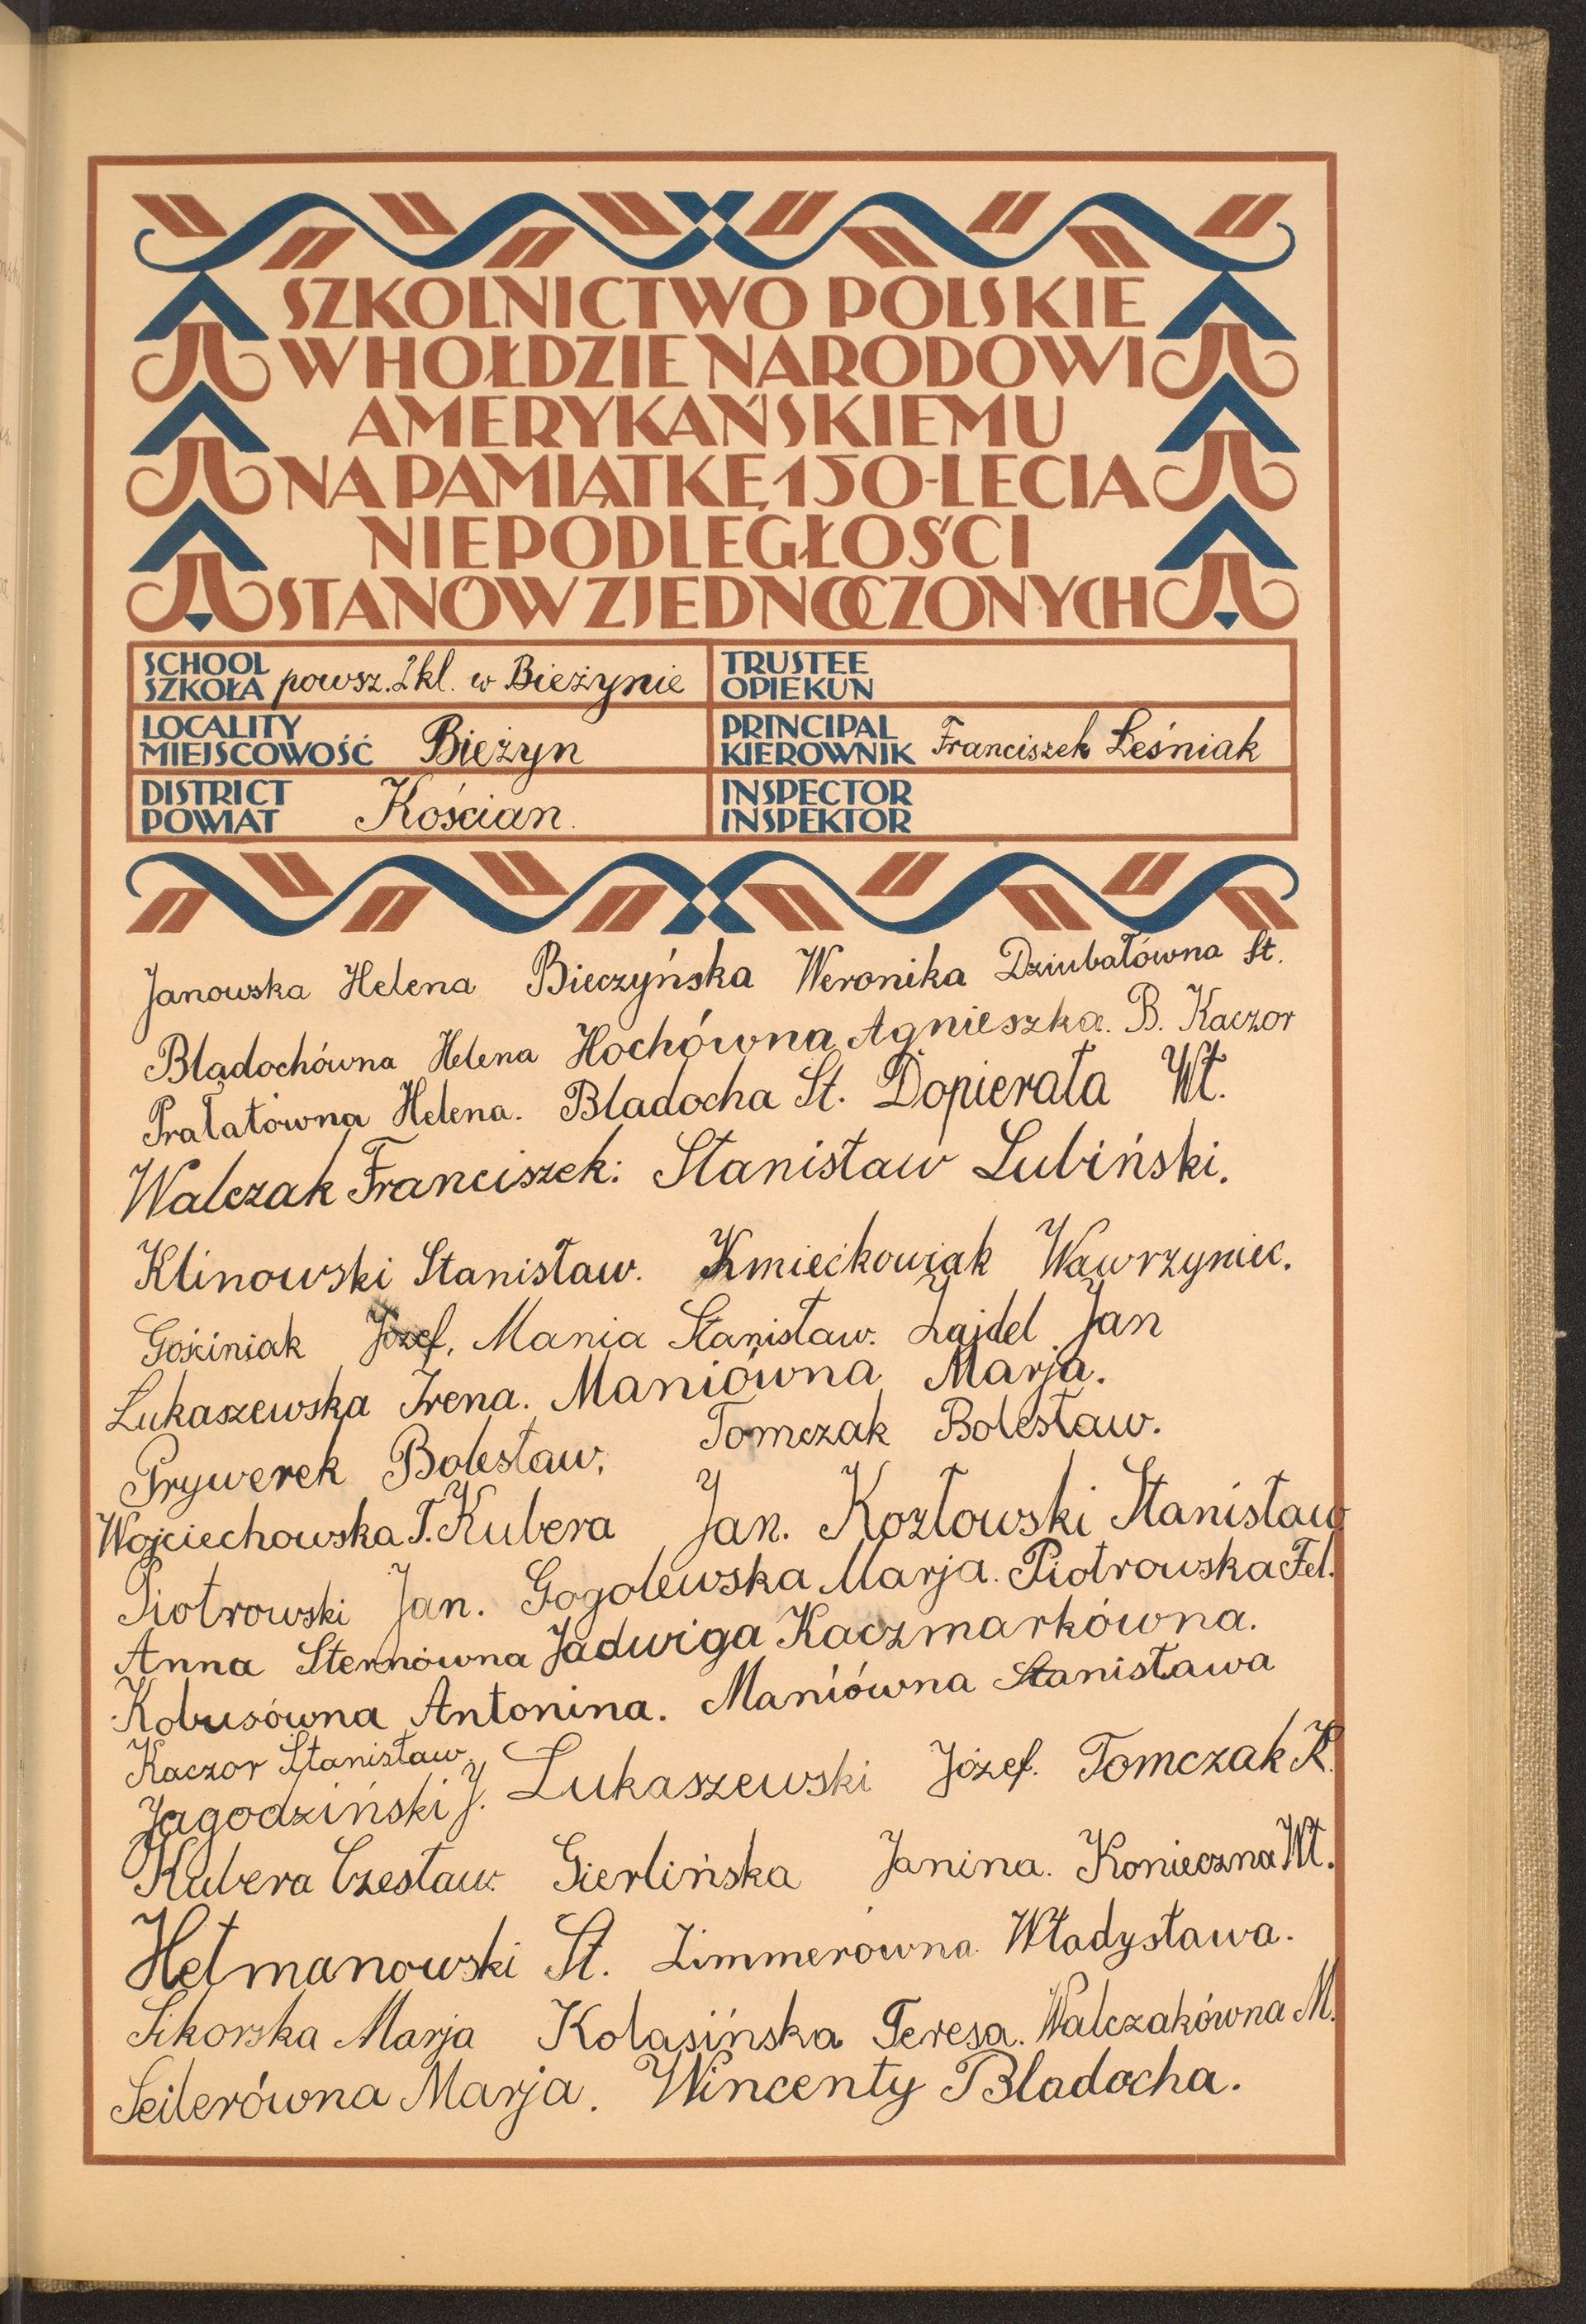 SZKOLNICTWO POLSKIE
W HOŁDZIE NARODOWI
AMERYKAŃSKIEMU
NA PAMIĄTKĘ 150-LECIA
NIEPODLEGŁOŚCI
STANÓW ZJEDNOCZONYCH
SCHOOL
SZKOŁA powsz. 2 kl. w Bieżynie
TRUSTEE
OPIEKUN
LOCALITY
MIEJSCOWOŚĆ Bieżyn
PRINCIPAL
KIEROWNIK Franciszek Leśniak
DISTRICT
POWIAT Kościan.
INSPECTOR
INSPEKTOR
Janowska Helena Bieczyńska Weronika Dziubałówna St.
Bladochówna Helena Hochówna Agnieszka. B. Kaczor
Prałatówna Helena. Bladocha St. Dopierała Wł.
Walczak Franciszek: Stanisław Lubiński.
Klinowski Stanisław. Kmiećkowiak Wawrzyniec.
Gościniak Józef, Mania Stanisław. Zajdel Jan
Łukaszewska Irena. Maniówna Marja.
Prywerek Bolesław, Tomczak Bolesław.
Wojciechowska T. Kubera Jan. Kozłowski Stanisław
Piotrowski Jan. Gogolewska Marja. Piotrowska Fel.
Anna Sternówna Jadwiga Kaczmarkówna.
Kobusówna Antonina. Maniówna Stanisława
Kaczor Stanisław.
Jagodziński J. Łukaszewski Józef. Tomczak K.
Kubera Czesław. Gierlińska Janina. Konieczna Wł.
Hełmanowski St. Zimmerówna Władysława.
Sikorska Marja Kolasińska Teresa. Walczakówna M.
Seilerówna Marja. Wincenty Bladocha.